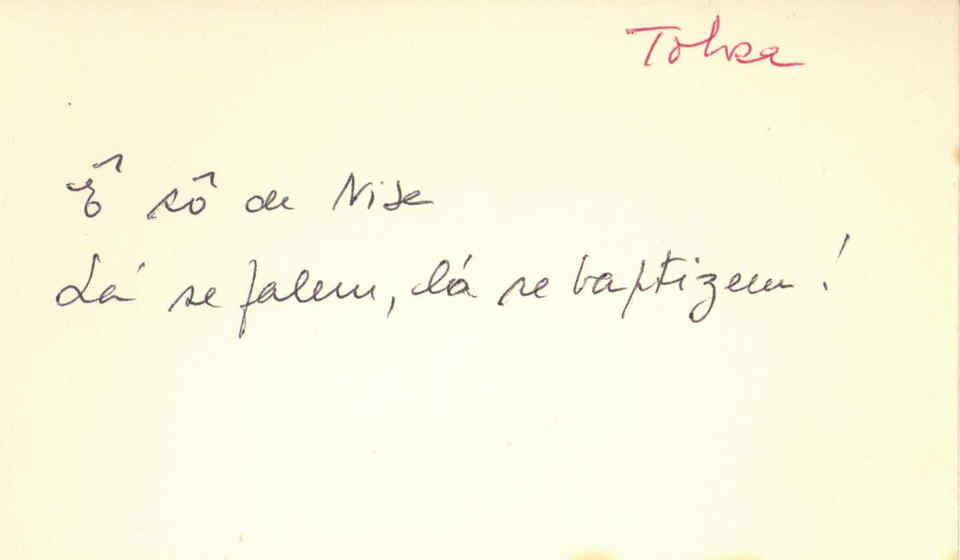 Tolosa
Ê sô de Nise
Lá se falem, lá se baptizem!